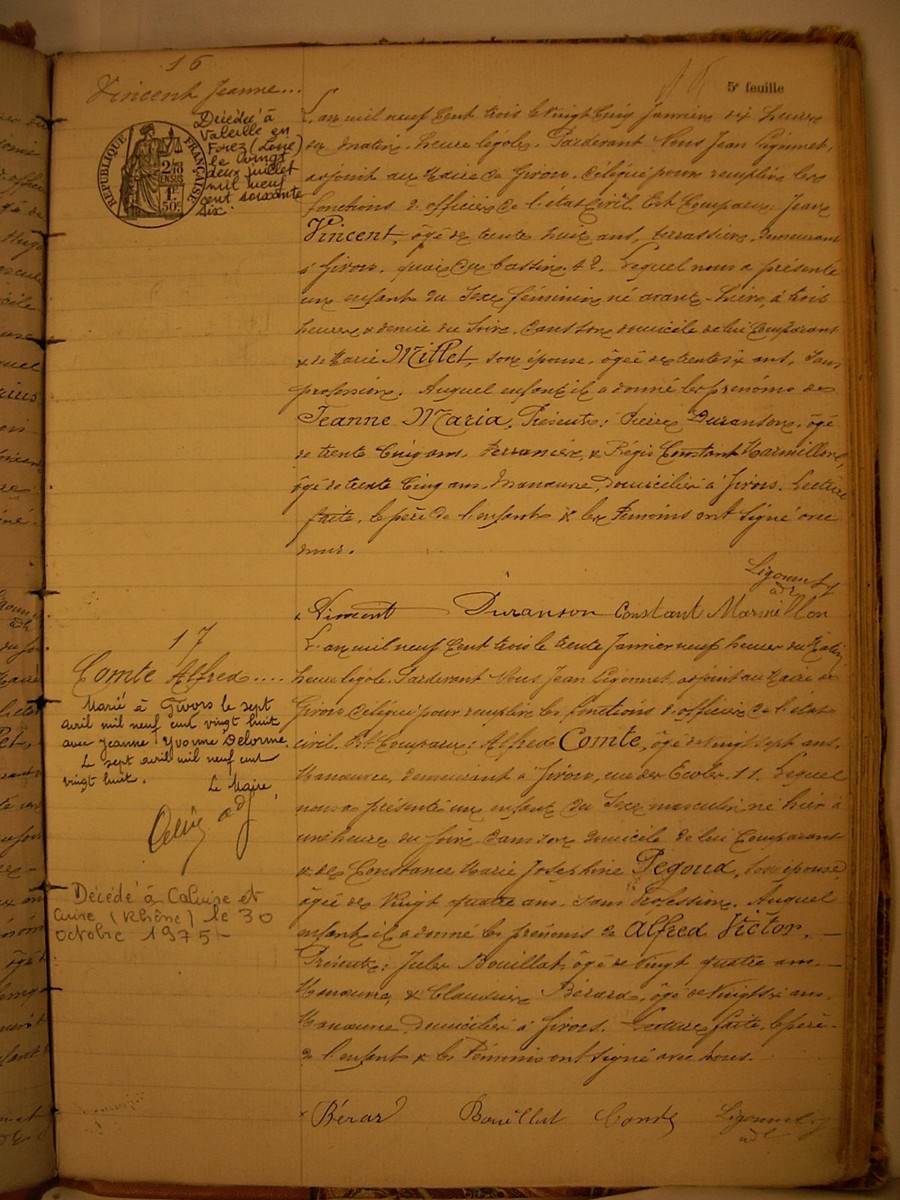 5e feuille
16
Vincent Jeanne...
Décédée à
Valeille en
Forez (Loire)
le vingt
deux juillet
mil neuf
cent soixante
six.
RÉPUBLIQUE FRANÇAISE
2/10
EN SUS
1f
50c
L'an mil neuf cent trois le vingt cinq Janvier dix heures
du matin, heure légale. Pardevant Nous Jean Ligonnet,
adjoint au Maire de Givors, délégué pour remplir les
fonctions d'officier de l'état civil. Est Comparu: Jean
Vincent, âgé de trente huit ans, terrassier, demeurant
à Givors, quai du bassin, 42. Lequel nous a présenté
un enfant du Sexe féminin né avant-hier, à trois
heures & demie du Soir, dans son domicile de lui Comparant
& de Marie Millet, son épouse, âgée de trente six ans, Sans
profession. Auquel enfant il a donné les prénoms de
Jeanne Maria. Présents: Pierre Duranson, âgé
de trente Cinq ans, & Régis Constant Marmillon,
âgé de trente Cinq ans, Manœuvre, domiciliés à Givors. Lecture
faite, le père de l'enfant & les Témoins ont Signé avec
nous.
Ligonnet
adt
Vincent Duranson Constant Marmillon
17
Comte Alfred....
Marié à Givors le sept
avril mil neuf cent vingt huit
avec Jeanne Yvonne Delorme.
Le sept avril mil neuf cent
vingt huit.
Le Maire,
adj
Décédé à Caluire et
Cuire (Rhône) le 30
octobre 1975-
L'an mil neuf Cent trois le trente Janvier neuf heures du Matin
heure légale. Pardevant Nous Jean Ligonnet, adjoint au Maire de
Givors délégué pour remplir les fonctions d'officier de l'état
civil. Est Comparu: Alfred Comte, âgé de vingt sept ans,
Manœuvre, demeurant à Givors, rue des Ecoles, 11. Lequel
nous a présenté un enfant du Sexe masculin né hier à
une heure du Soir dans son domicile de lui Comparant
& de Constance Marie Joséphine Pegoud, Son épouse
âgée de Vingt quatre ans, Sans Profession. Auquel
enfant il a donné les prénoms de Alfred Victor. —
Présents: Jules Bouillat, âgé de vingt quatre ans —
Manœuvre, & Claudius Bérard, âgé de vingt six ans,
Manœuvre, domiciliés à Givors. Lecture faite, le père-
de l'enfant & les Témoins ont Signé avec nous.
Bérard Bouillat Comte Ligonnet
adt